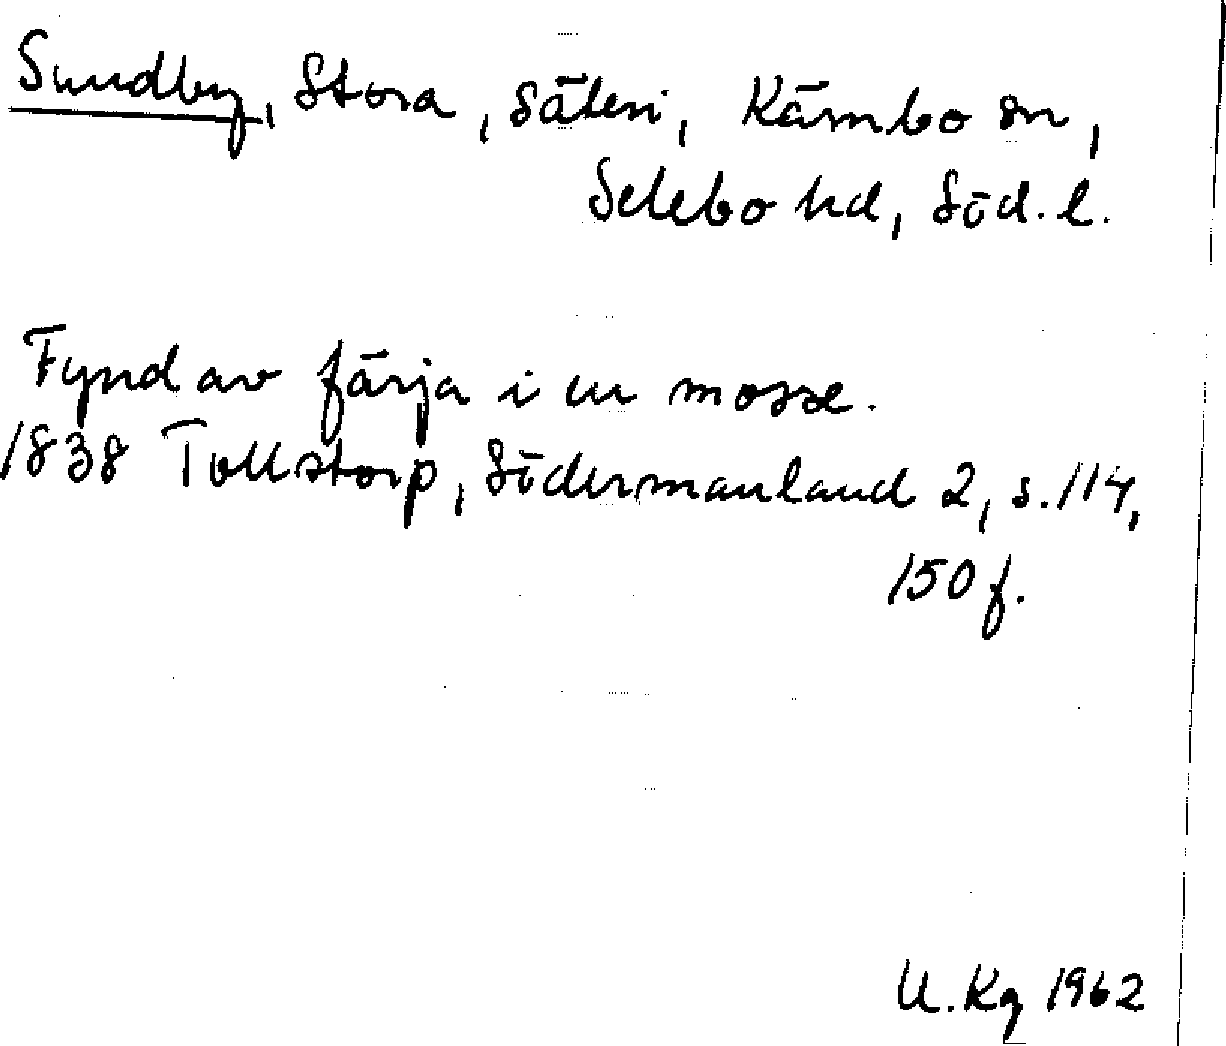 Sundby, Stora, säteri, Kärnbo sn,
Selebo hd, Söd. l.
Fynd av färja i en mosse.
1838 Tollstorp, Södermanland 2, s. 114,
150 f.
U. Kg 1962